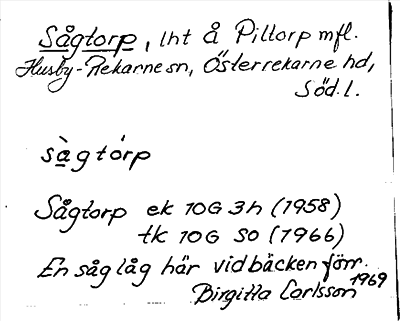 Sågtorp, lht å Piltorp mfl.
Husby-Rekarne sn, Österrekarne hd,
Söd. l.
sàgtórp
Sågtorp ek 10G 3h (1958)
tk 10G SO (1966)
En såg låg här vid bäcken förr.
Birgitta Carlsson 1969